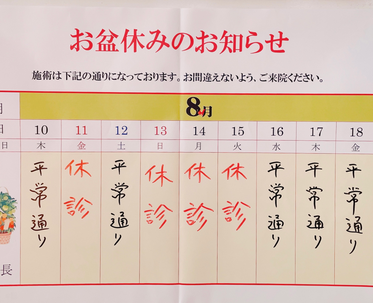 お盆休みのお知らせ
施術は下記の通りになっております。お間違えないよう、ご来院ください。
月 8月
日 10 11 12 13 14 15 16 17 18
日 木 金 土 日 月 火 水 木 金
長 平常通り 休診 平常通り 休診 休診 休診 平常通り 平常通り 平常通り